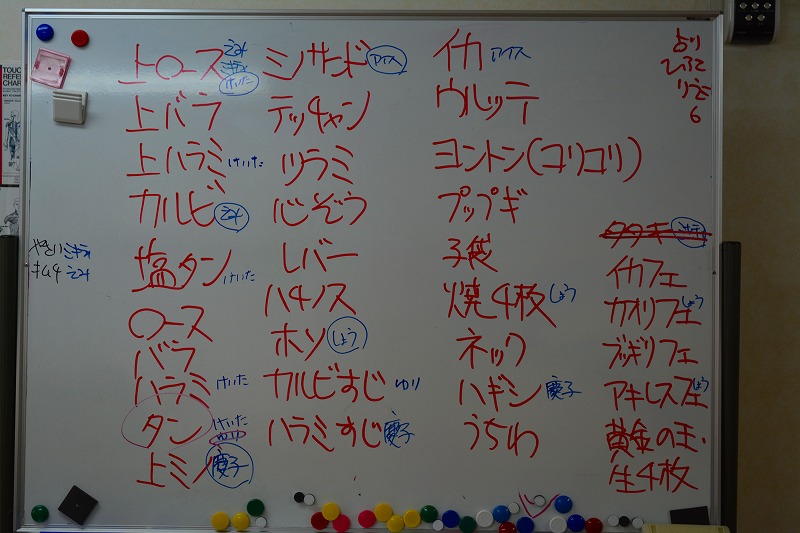 上ロース えみ
けいた
上バラ
上ハラミ けいた
カルビ えみ
塩タン けいた
ロース
バラ
ハラミ けいた
タン けいた
ゆり
上ミノ 慶子
キムチ えみ
ミサンド アイス
テッチャン
ツラミ
心ぞう
レバー
ハチノス
ホソ しょう
カルビすじ ゆり
ハラミすじ 慶子
イカ アイス
ウルッテ
ヨントン(コリコリ)
プップギ
子袋
焼4枚 しょう
ネック
ハギシ 慶子
うちわ
6
タタキ
イカフェ
カオリフェ しょう
ブッギリフェ
アキレスフェ しょう
黄金の玉・
生4枚
TOUC
REFER
CHAR